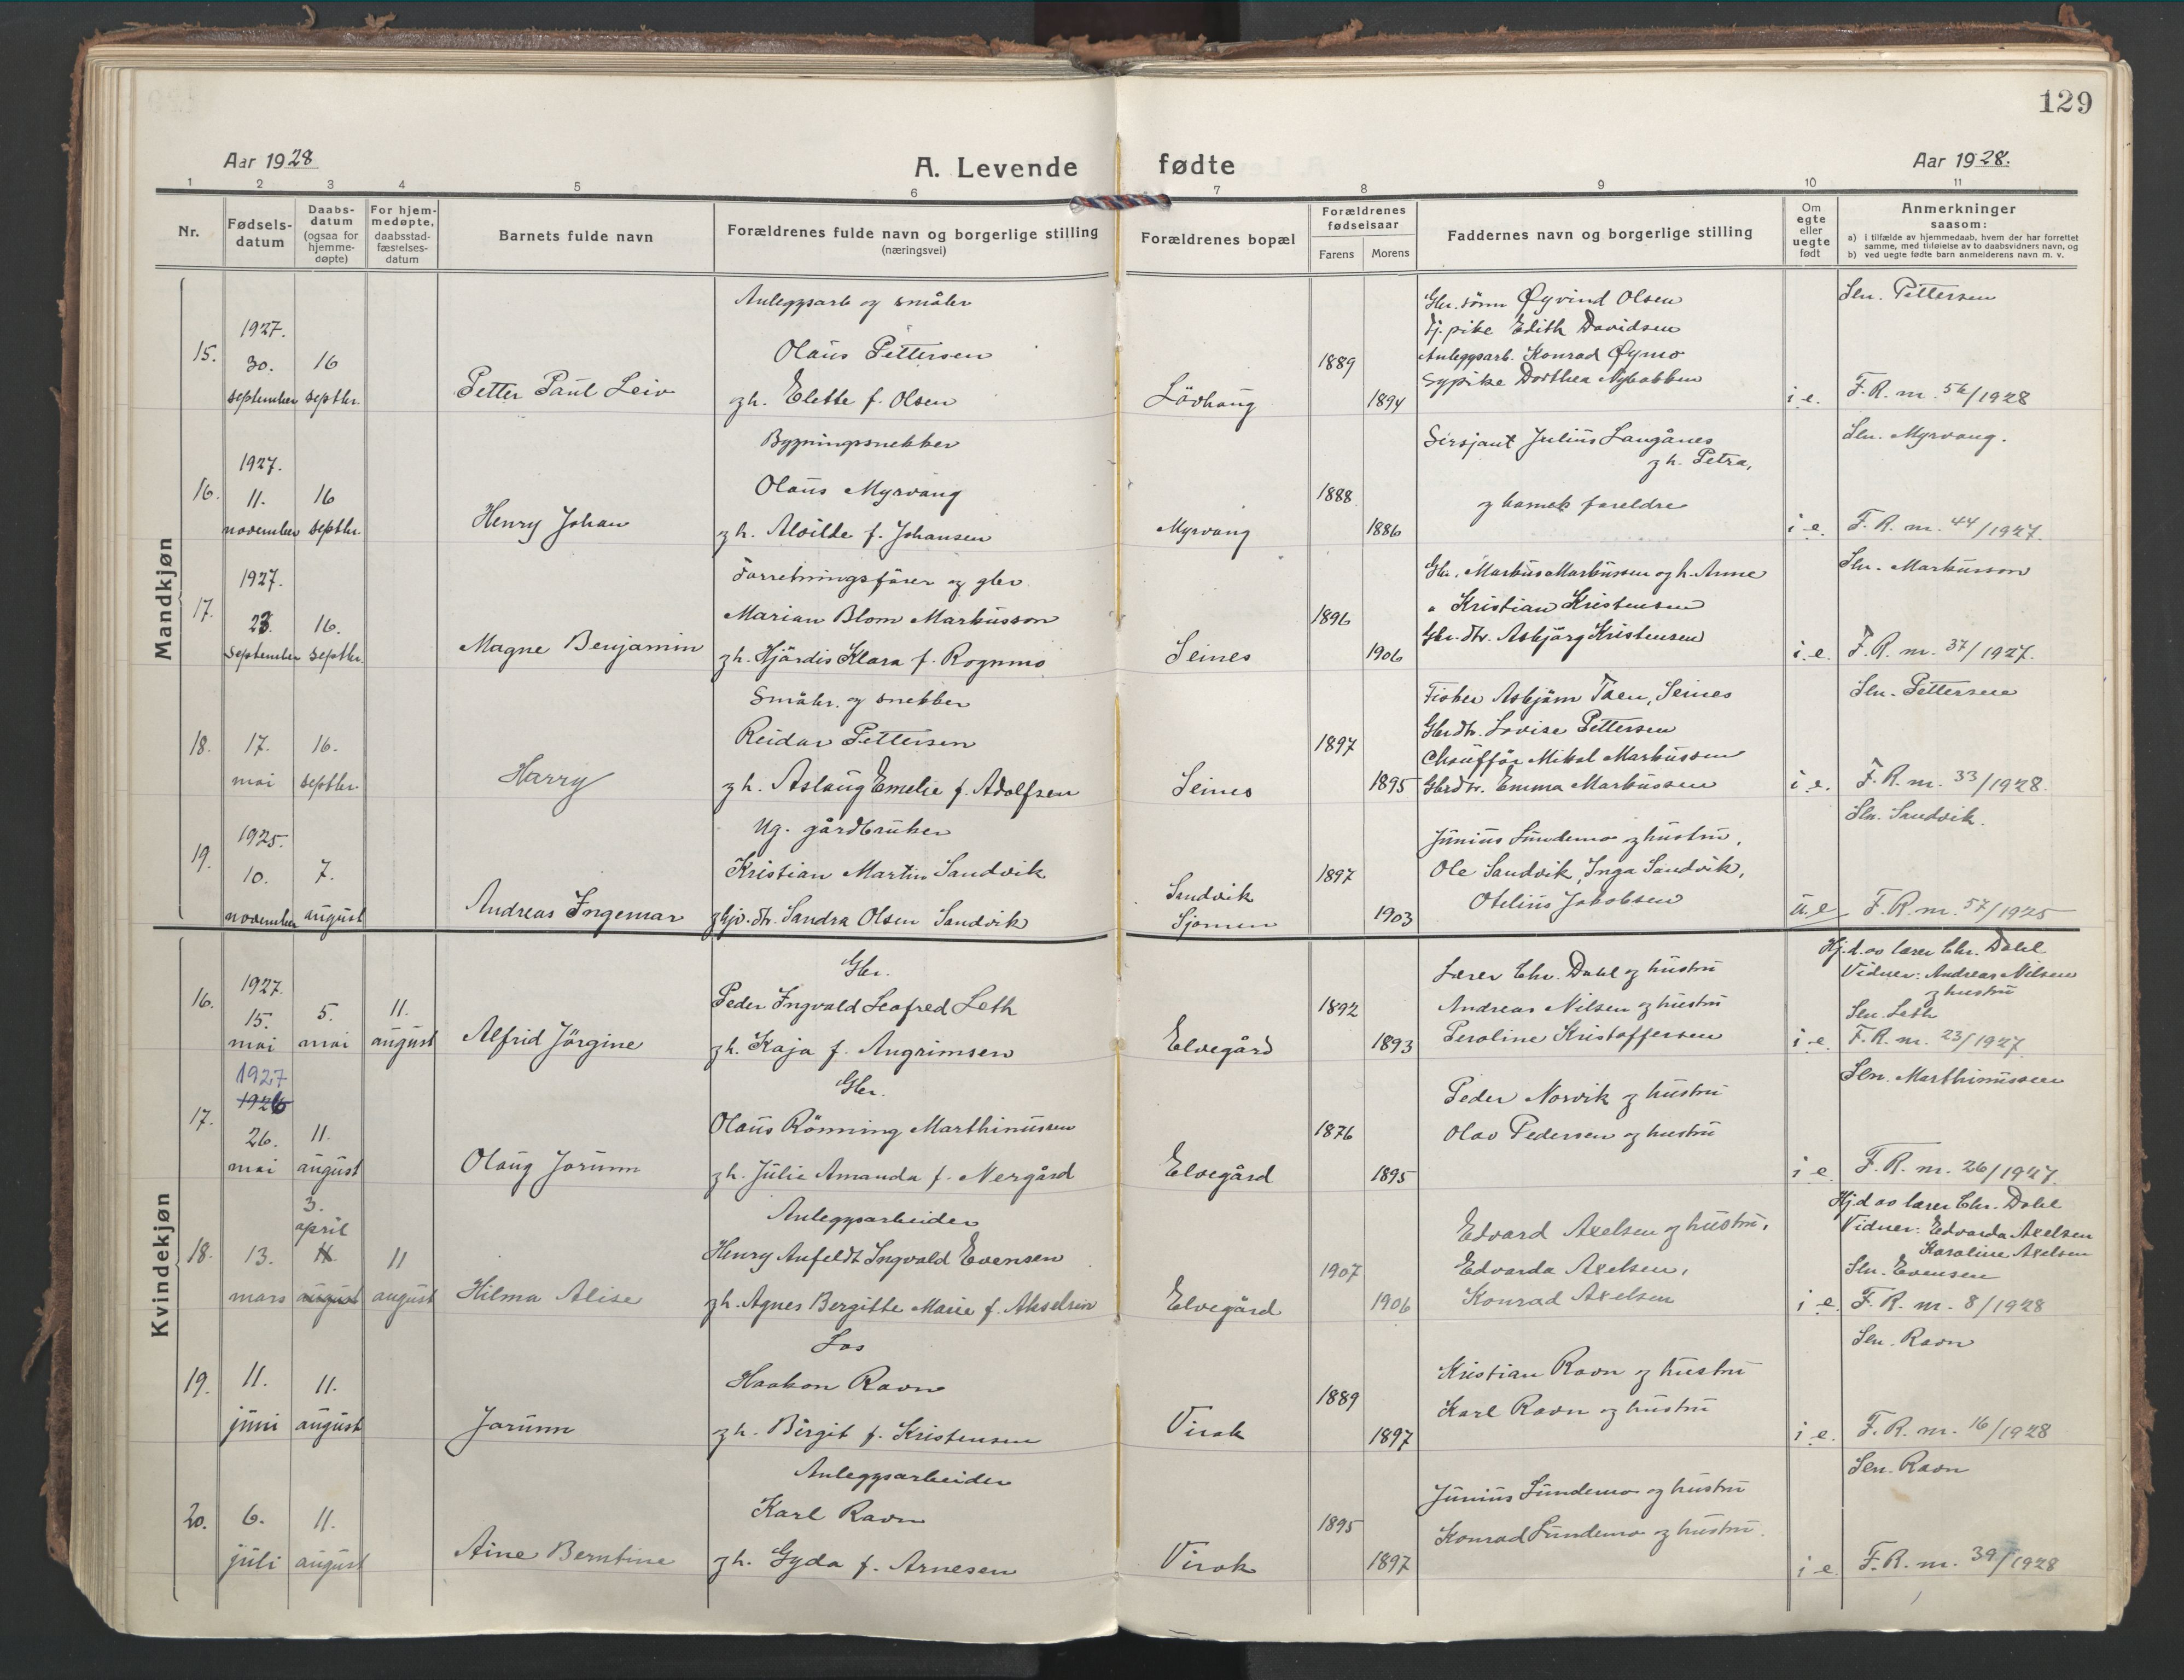 129
Aar 1928
A. Levende fødte
Aar 1928.
1 2 3 4 5 6 7 8 9 10 11
Nr.
Fødsels-
datum
Daabs-
datum
(ogsaa for
hjemme-
døpte)
For hjem-
medøpte,
daabsstad-
fæstelses-
datum
Barnets fulde navn
Forældrenes fulde navn og borgerlige stilling
(næringsvei)
Forældrenes bopæl
Forældrenes
fødselsaar
Farens
Morens
Faddernes navn og borgerlige stilling
Om
egte
eller
uegte
født
Anmerkninger
saasom:
a) i tilfælde av hjemmedaab, hvem der har forrettet
samme, med tilføielse av to daabsvidners navn, og
b) ved uegte fødte barn anmelderens navn m. v.
Mandkjøn
15.
1927.
30.
september
16
septbr.
Petter Paul Leiv
Anleggsarb og småbr
Olaus Pettersen
g h. Elette f. Olsen
Lövhaug
1889
1894
Gbr. sönn Øyvind Olsen
Tj. pike Edith Davidsen
Anleggsarb. Konrad Øymo
Sypike Dorthea Nybakken
i. e.
Sln. Pettersen
F. R. nr. 56/1928
16.
1927.
11.
november
16
septbr.
Henry Johan
Bygningssnekker
Olaus Myrvang
g h. Alvilde f. Johansen
Myrvang
1888
1886
Sersjant Julius Langånes
g h. Petra,
g barnets foreldre
i e.
Sln. Myrvang.
F. R. nr. 44/1927.
17.
1927.
23.
september
16.
septbr.
Magne Benjamin
Forretningsfører og gbr
Marian Blom Markusson
g h. Hjördis Klara f. Rognmo
Seines
1896
1906
Gbr. Markus Markussen og h. Anne
" Kristian Kristensen
Gbr. dtr. Asbjörg Kristensen
i. e.
Sln. Markusson
F. R. nr. 37/1927.
18.
17.
mai
16.
septbr.
Harry
Småbr. og snekker
Reidar Pettersen
g h. Aslaug Emelie f. Adolfsen
Seines
1897
1895
Fisker Asbjörn Toen, Seines
Gbrdtr. Lovise Pettersen
Chaufför Mikal Markussen
Gbrdtr. Emma Markussen
i e.
Sln. Pettersen
F. R. nr. 33/1928.
19.
1925.
10.
november
7.
august
Andreas Ingemar
Ug. gårdbruker
Kristian Martin Sandvik
g gjv. dtr. Sandra Olsen Sandvik
Sandvik
Sjomen
1897
1903
Junius Sundemo g hustru,
Ole Sandvik, Inga Sandvik,
Otelius Jakobsen
u. e
Sln. Sandvik.
F. R. nr. 57/1925
Kvindekjøn
16.
1927.
15.
mai
5.
mai
11.
august
Alfrid Jörgine
Gbr.
Peder Ingvald Leofred Leth
g h. Kaja f. Angrimsen
Elvegård
1892
1893
Lærer Chr. Dahl g hustru
Andreas Nilsen g hustru
Peroline Kristoffersen
i e.
Hj. d. av lærer Chr. Dahl
Vidner: Andreas Nilsen
g hustru
Sln. Leth
F. R. nr. 23/1927
17.
1927
1926
26.
mai
11.
august
Olaug Jorunn
Gbr.
Olaus Rönning Marthinussen
g h. Julie Amanda f. Nergård
Elvegård
1876
1895
Peder Norvik g hustru
Olav Pedersen og hustru
i e
Sln. Marthinussen
F. R. nr. 26/1927.
18.
13.
mars
3.
april
11
august
11
august
Hilma Alise
Anleggsarbeider
Henry Anfeldt Ingvald Evensen
g h. Agnes Bergitte Marie f. Akselsen
Elvegård
1907
1906
Edvard Axelsen og hustru,
Edvarda Axelsen,
Konrad Axelsen
i e
Hj. d av lærer Chr. Dahl
Vidner: Edvarda Axelsen
Karoline Axelsen
Sln. Evensen
F. R. nr. 8/1928
19.
11.
juni
11.
august
Jorunn
Los
Haakon Ravn
g h. Birgit f. Kristensen
Virak
1889
1897
Kristian Ravn g hustru
Karl Ravn og hustru
i e.
Sln. Ravn
F. R. nr. 16/1928
20.
6.
juli
11.
august
Aine Berntine
Anleggsarbeider
Karl Ravn
g h. Gyda f. Arnesen
Virak
1895
1897
Junius Sundemo og hustru
Konrad Sundemo g hustru.
i e
Sln. Ravn
F. R. nr. 39/1928